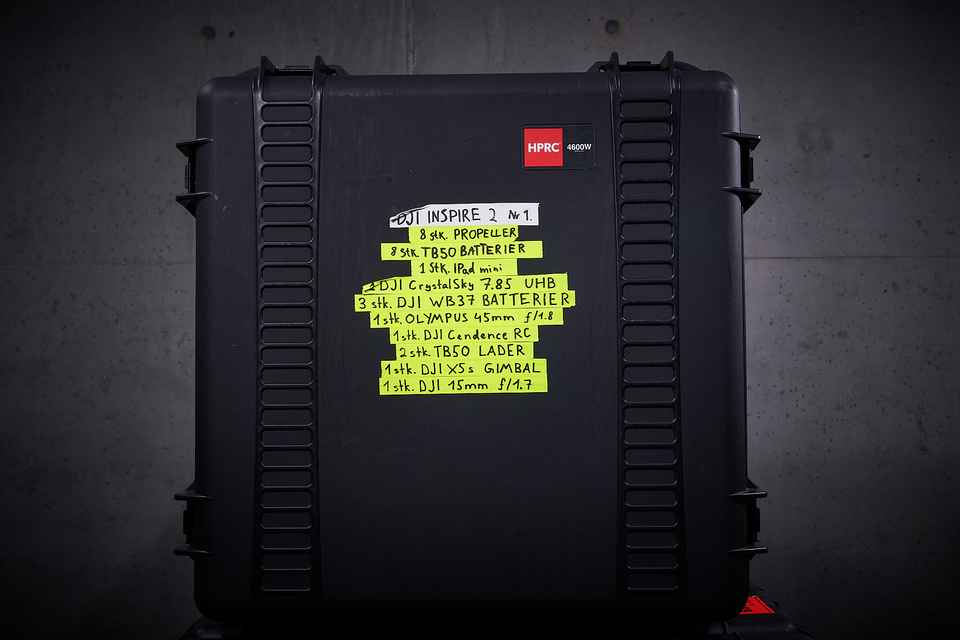 HPRC 4600W
DJI INSPIRE 2 Nr 1.
8 stk. PROPELLER
8 stk. TB50 BATTERIER
1 stk. IPad mini
1 DJI CrystalSky 7.85 UHB
3 stk. DJI WB37 BATTERIER
1 stk. OLYMPUS 45mm f/1.8
1 stk. DJI Cendence RC
2 stk. TB50 LADER
1 stk. DJI X5s GIMBAL
1 stk. DJI 15mm f/1.7